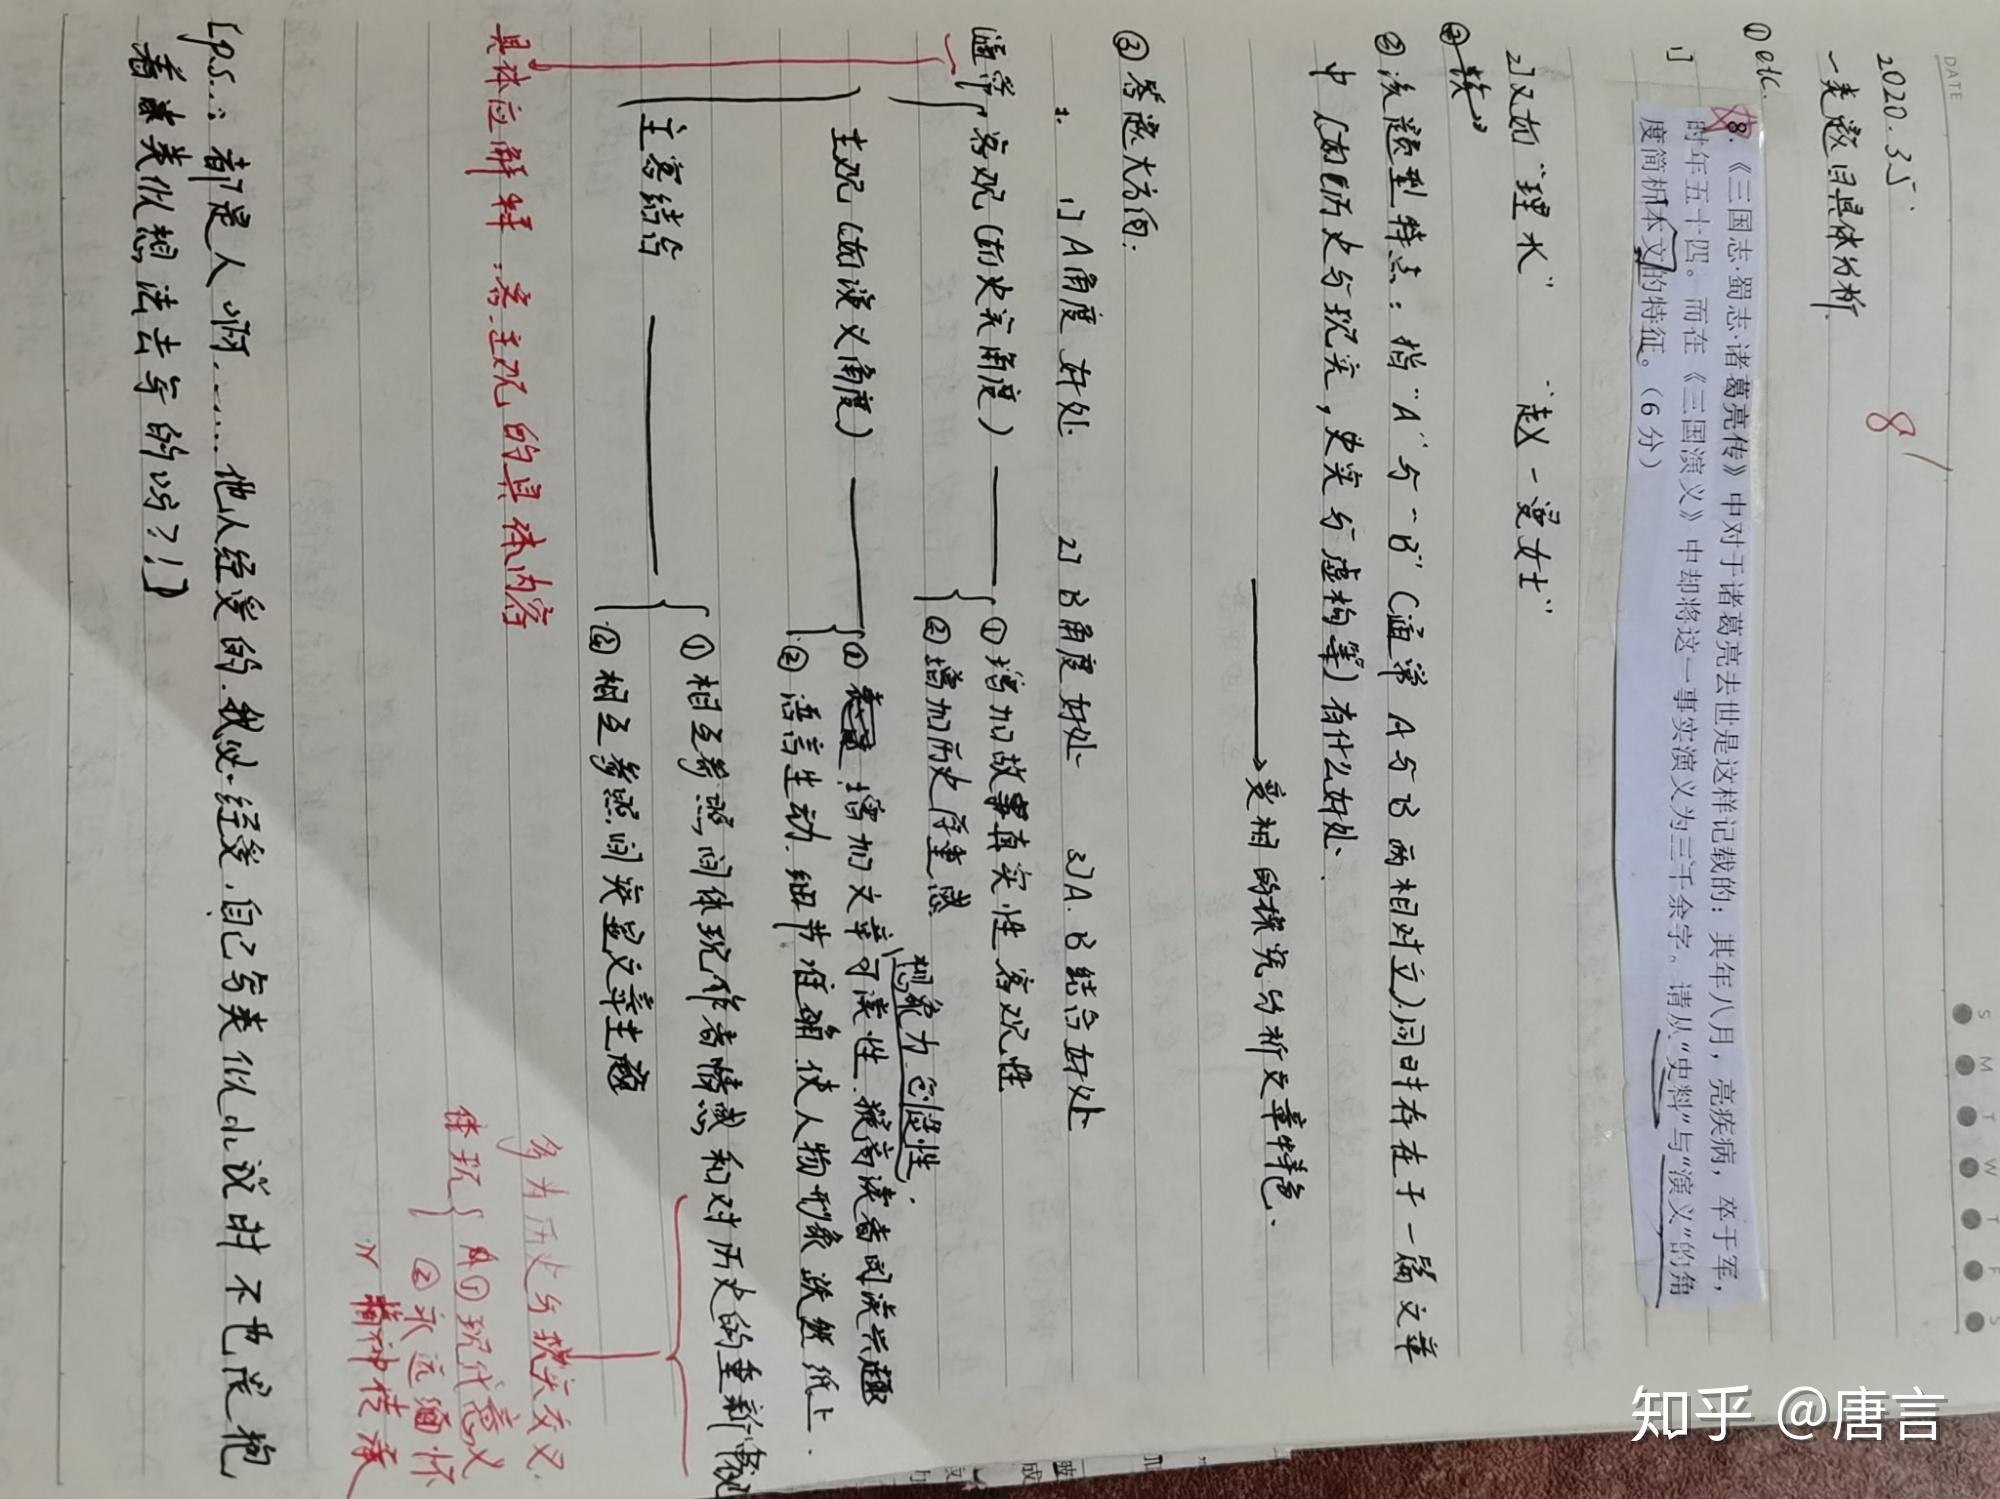 DATE
S M T W T F S
2020.3.5.
8
一类题目具体分析.
① etc.
1] 8.《三国志·蜀志·诸葛亮传》中对于诸葛亮去世是这样记载的：其年八月，亮疾病，卒于军，
时年五十四。而在《三国演义》中却将这一事实演义为三千余字。请从“史料”与“演义”的角
度简析本文的特征。（6分）
2] 又如“理水” “赵一曼女士”
② 该题型特点：指“A”与“B”（通常A与B两相对立）同时存在于一篇文章
中（如历史与现实，史实与虚构等）有什么好处.
变相的探究分析文章特色.
③ 答题大方向：
1. 1] A角度好处 2] B角度好处 3] A.B结合好处
通常 客观（如史实角度） ① 增加故事真实性 客观性
② 增加历史厚重感
想象力 创造性.
主观（如演义角度） ① 增加文章可读性.提高读者阅读兴趣
② 语言生动.细节准确.使人物形象跃然纸上.
主客结合 ① 相互参照,间体现作者情感和对历史的重新审视
② 相互参照.间突显文章主题
多为历史与现实交叉.
具体应解释.客.主观的具体内容
体现 ① 现代意义
② 永远缅怀
精神传承
[p.s.：都是人啊……他人经受的.我必经受.自己写类似小说时不也是抱
着类似想法去写的吗?!]
知乎 @唐言